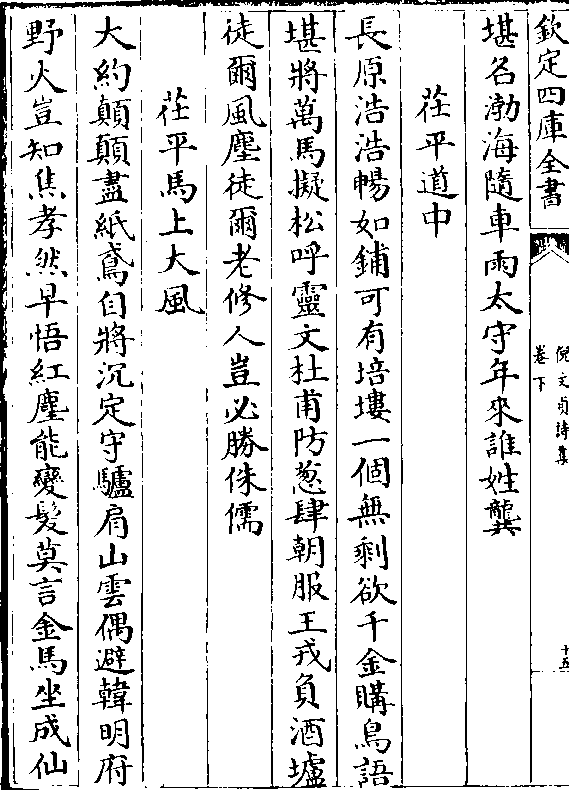 欽定四庫全書
倪文貞詩集
卷下
十五
堪名渤海隨車雨太守年來誰姓龔
茌平道中
長原浩浩暢如鋪可有培塿一個無剩欲千金購鳥語
堪將萬馬擬松呼靈文杜甫防葱肆朝服王戎負酒壚
徒爾風塵徒爾老修人豈必勝侏儒
茌平馬上大風
大約顛顛盡紙鳶自將沉定守驢肩山雲偶避韓明府
野火豈知焦孝然早悟紅塵能變髮莫言金馬坐成仙